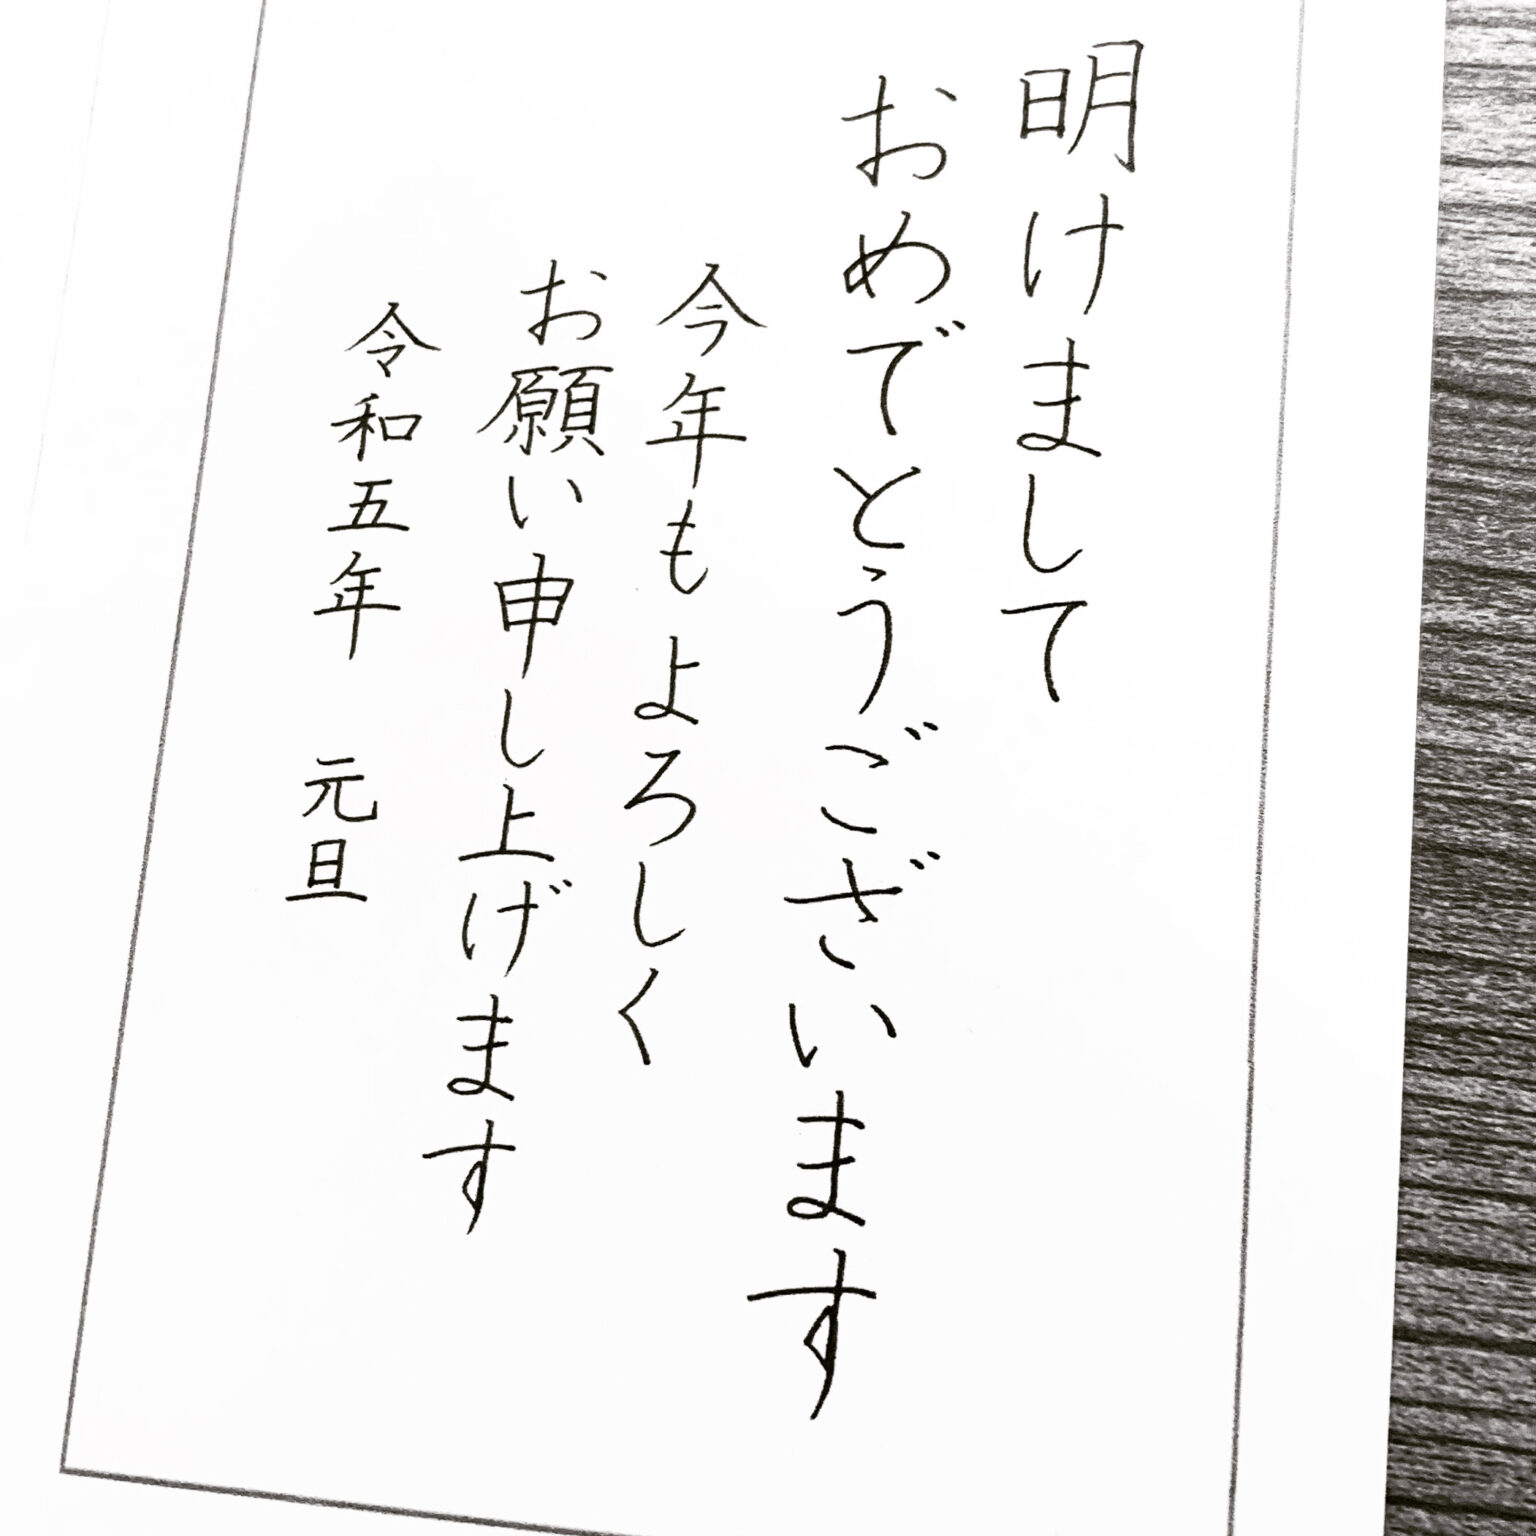 明けまして
おめでとうございます
今年もよろしく
お願い申し上げます
令和五年　元旦